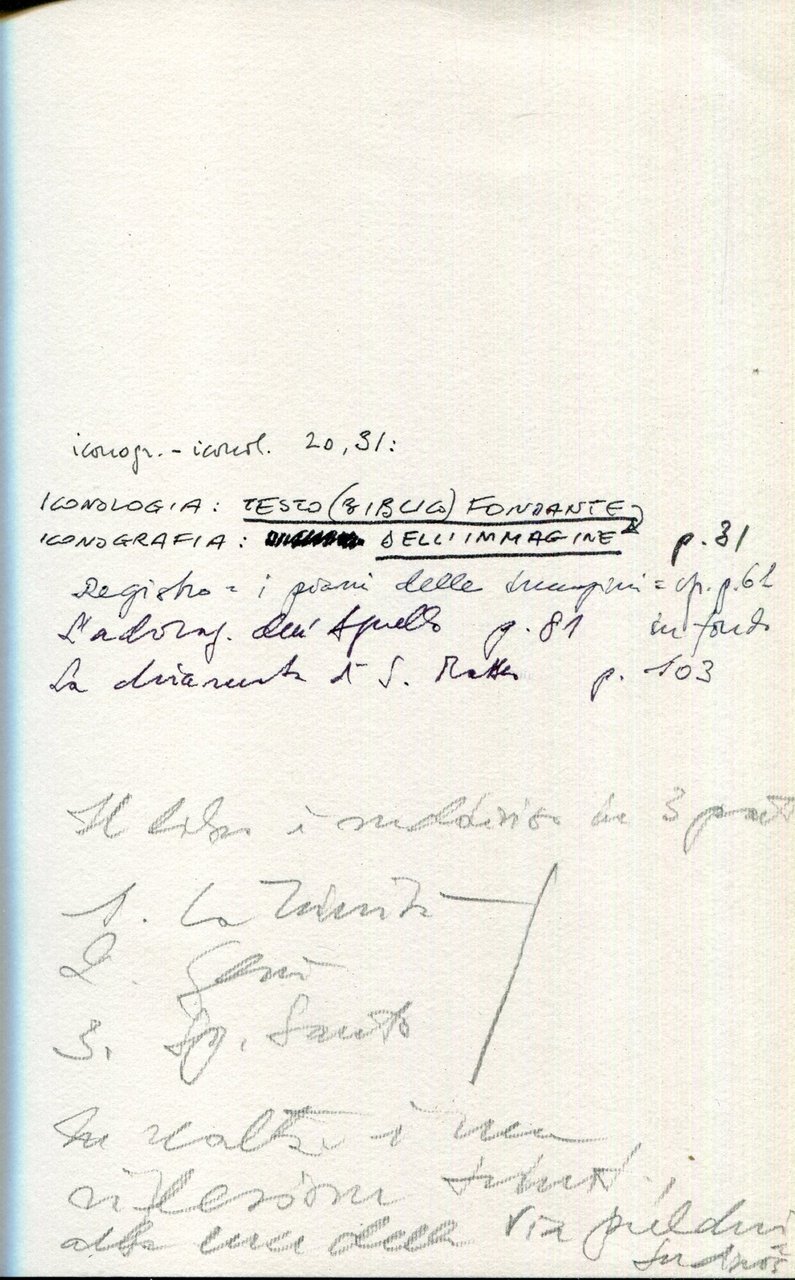 iconogr. - iconol. 20, 31:
ICONOLOGIA: TESTO (BIBLICO) FONDANTE
ICONOGRAFIA: DELL'IMMAGINE p. 31
Registro = i piani delle immagini = cfr. p. 62
L'adoraz. dell'Agnello p. 81 in fondo
La chiamata di S. Matteo p. 103
Il libro è suddiviso in 3 parti
1. La Trinità
2. Gesù
3. Sp. Santo
In realtà è una
riflessione
alla luce della Via pulchri